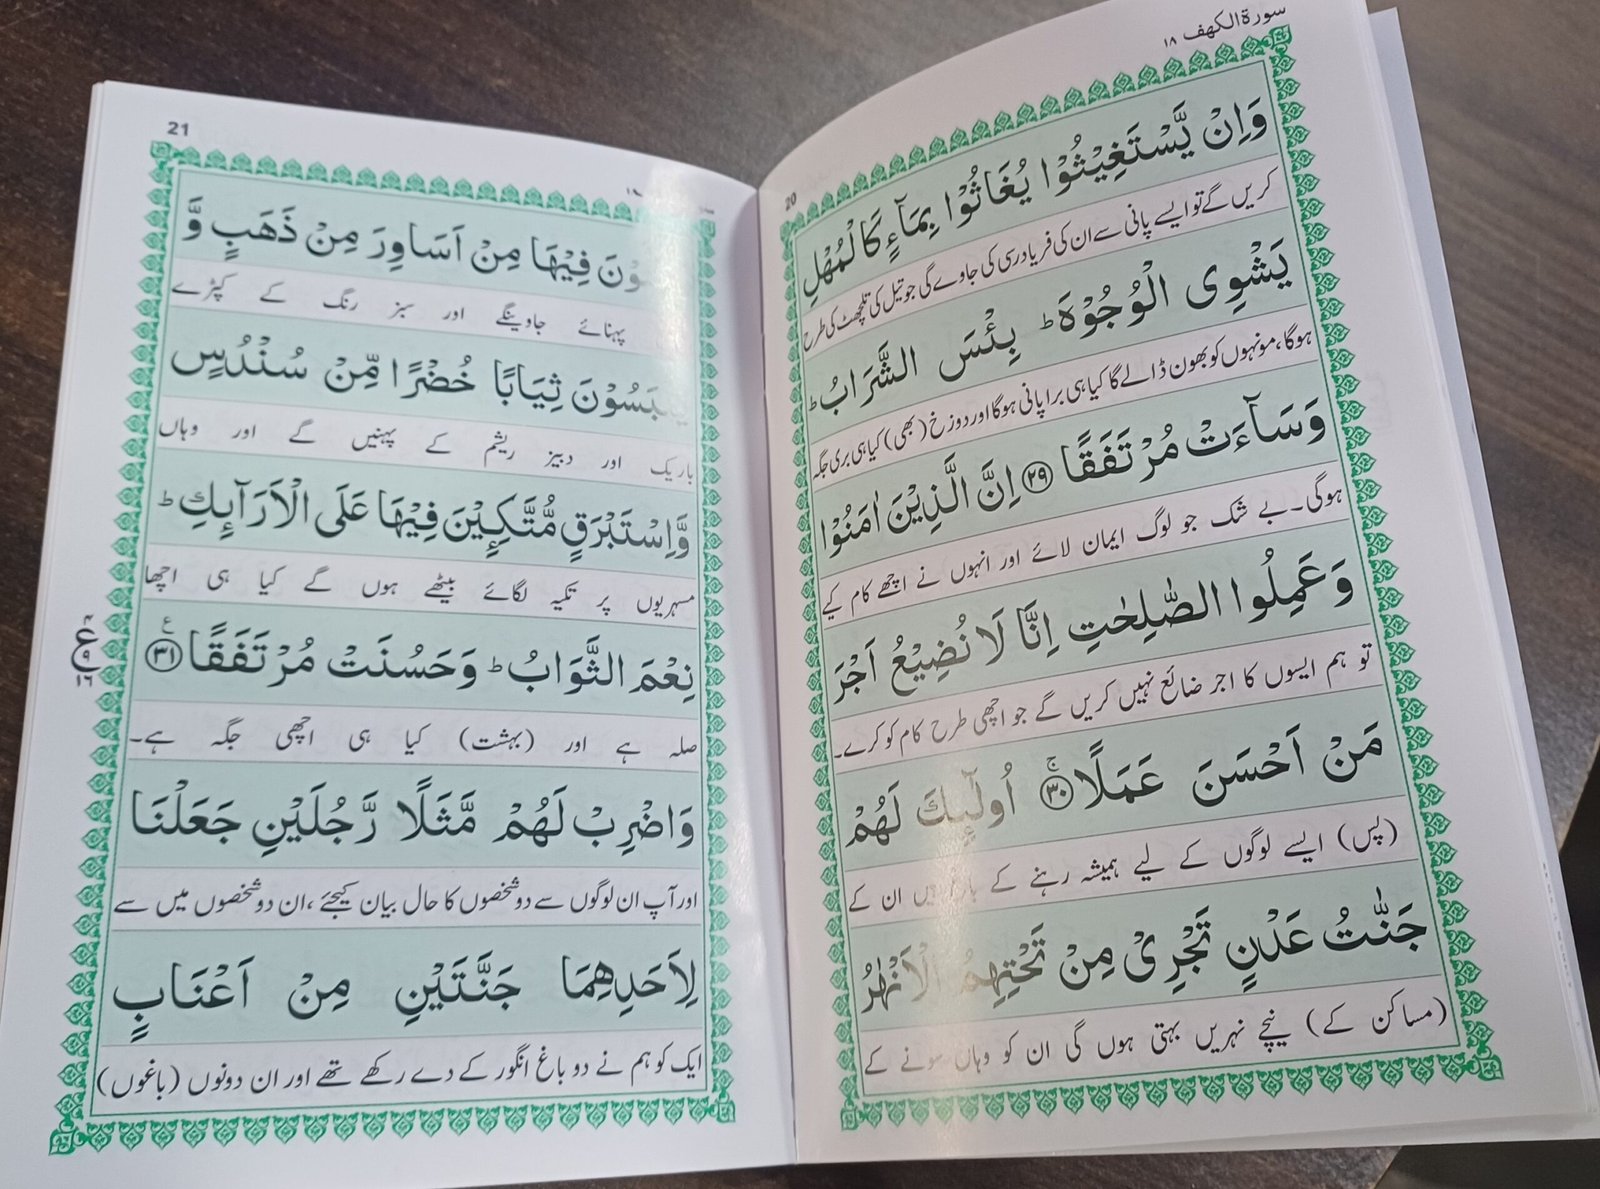 سورة الكهف ١٨
20
وَاِنْ يَّسْتَغِيْثُوْا يُغَاثُوْا بِمَآءٍ كَالْمُهْلِ
کریں گے تو ایسے پانی سے ان کی فریاد رسی کی جاوے گی جو تیل کی تلچھٹ کی طرح
يَشْوِى الْوُجُوْهَ ؕ بِئْسَ الشَّرَابُ ؕ
ہوگا، مونہوں کو بھون ڈالے گا کیا ہی برا پانی ہوگا اور دوزخ (بھی) کیا ہی بری جگہ
وَسَآءَتْ مُرْتَفَقًا ۝۲۹ اِنَّ الَّذِيْنَ اٰمَنُوْا
ہوگی۔ بے شک جو لوگ ایمان لائے اور انہوں نے اچھے کام کیے
وَعَمِلُوا الصّٰلِحٰتِ اِنَّا لَا نُضِيْعُ اَجْرَ
تو ہم ایسوں کا اجر ضائع نہیں کریں گے جو اچھی طرح کام کو کرے۔
مَنْ اَحْسَنَ عَمَلًا ۝۳۰ۚ اُولٰٓئِكَ لَهُمْ
(پس) ایسے لوگوں کے لیے ہمیشہ رہنے کے ان کے
جَنّٰتُ عَدْنٍ تَجْرِىْ مِنْ تَحْتِهِمُ الْاَنْهٰرُ
(مساکن کے) نیچے نہریں بہتی ہوں گی ان کو وہاں سونے کے
21
فِيْهَا مِنْ اَسَاوِرَ مِنْ ذَهَبٍ وَّ
پہنائے جاوینگے اور سبز رنگ کے کپڑے
ثِيَابًا خُضْرًا مِّنْ سُنْدُسٍ
باریک اور دبیز ریشم کے پہنیں گے اور وہاں
وَّاِسْتَبْرَقٍ مُّتَّكِـِٕيْنَ فِيْهَا عَلَى الْاَرَآئِكِ ؕ
مسہریوں پر تکیہ لگائے بیٹھے ہوں گے کیا ہی اچھا
نِعْمَ الثَّوَابُ ؕ وَحَسُنَتْ مُرْتَفَقًا ۝۳۱ع
ع
صلہ ہے اور (بہشت) کیا ہی اچھی جگہ ہے۔
وَاضْرِبْ لَهُمْ مَّثَلًا رَّجُلَيْنِ جَعَلْنَا
اور آپ ان لوگوں سے دو شخصوں کا حال بیان کیجئے، ان دو شخصوں میں سے
لِاَحَدِهِمَا جَنَّتَيْنِ مِنْ اَعْنَابٍ
ایک کو ہم نے دو باغ انگور کے دے رکھے تھے اور ان دونوں (باغوں)